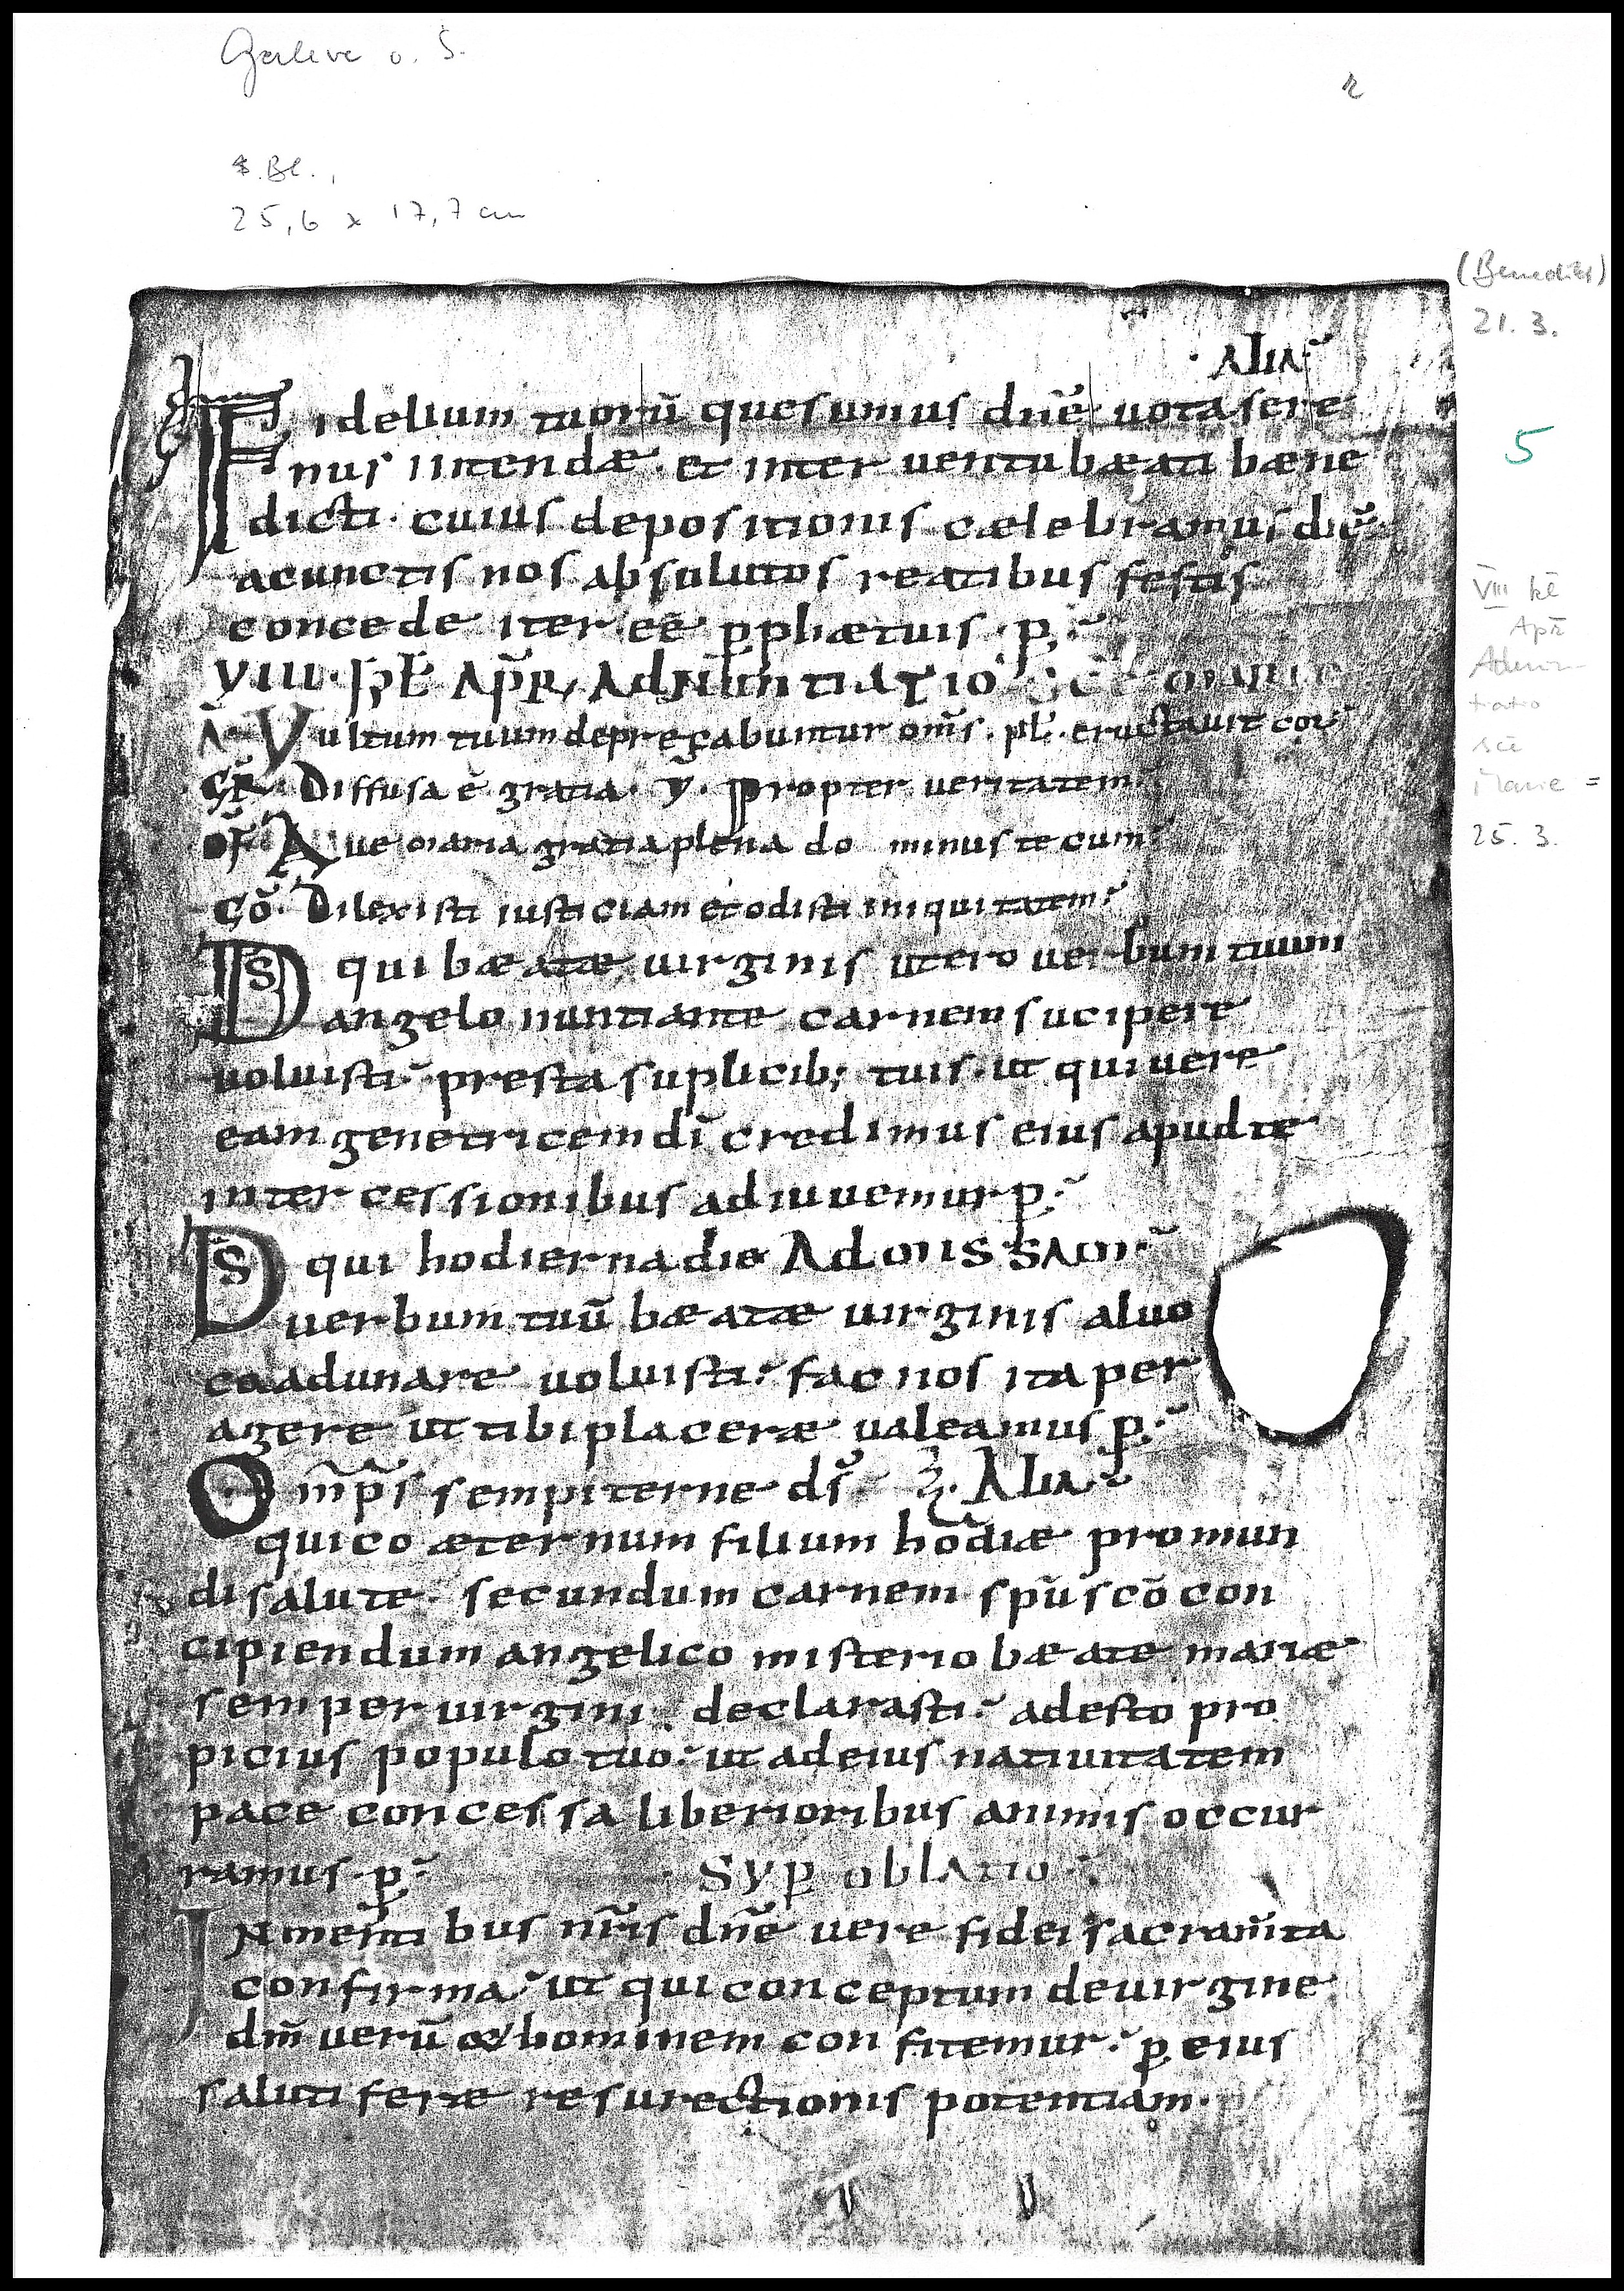 Gerleve o. S.
r
Bl.,
25,6 x 17,7 cm
(Benedikt)
21. 3.
· ALIA
Fidelium tuorū quesumus dn̄e uota sere
nus intendæ · et inter uentu bæati bæne
dicti · cuius depositionis cælebramus diē
acunctis nos absolutos reatibus festis
concede iter eē p̱p̱hætuis · p̱
5
VIII · KL̄ AP̄R, ADNŪNTIATIO SC̄E MARIE
Ā Vultum tuum depręcabuntur om̄s · pł · eructauit cor
GR̄ Diffusa ē gratia · ꝟ · propter ueritatem
OF̄ Aue maria gratia plena do minus te cum
CŌ · Dilexisti iusticiam et odisti iniquitatem
D̄S qui bæatæ uirginis utero uerbum tuum
angelo nuntiante carnem sucipere
uoluisti · presta suplicib; tuis · ut qui uere
eam genetricem dī credimus eius apud te
inter cessionibus adiuuemur p̱
D̄S qui hodierna die AD MISSAM
uerbum tuū bæatæ uirginis aluo
coadunare uoluisti · fac nos ita per
agere ut tibi placeræ ualeamus p̱
Om̄p̄s sempiterne ds̄ ALIA
qui co æternum filium hōdiæ pro mun
di salute · secundum carnem sp̄u sc̄o con
cipiendum angelico misterio bæate mariæ
semper uirgini declarasti · adesto pro
picius populo tuo · ut ad eius natiuitatem
pace concessa liberioribus animis occur
ramus · p̱ · SVP̱ OBLATIO
IN mentibus nr̄is dn̄e uere fidei sacram̄ta
confirma · ut qui conceptum de uirgine
dm̄ uerū & hominem con fitemur · p̱ eius
saluti feræ resurectionis potentiam ·
VIII kl
Apr
Adnun-
tiatio
sce
Marie =
25. 3.